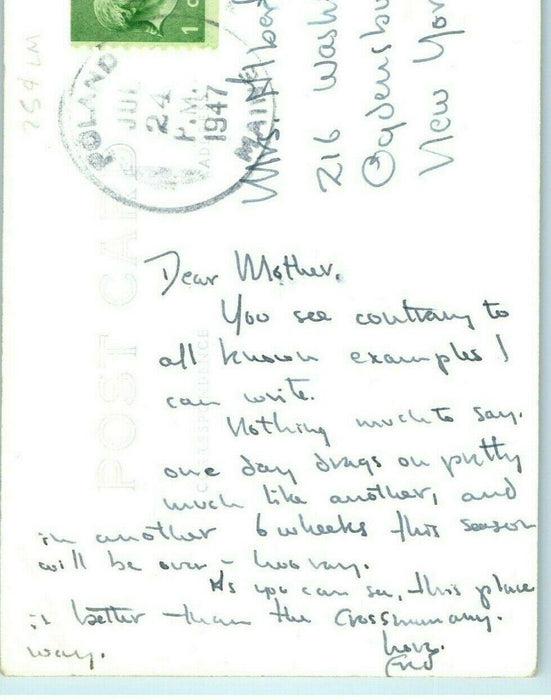 254 LM
1 C
POLAND
JUL
24
P.M.
1947
MAINE
POST CARD
CORRESPONDENCE
Mrs. Albe
216 Wash
Ogdensbu
New Yor
Dear Mother,
You see contrary to
all known examples I
can write.
Nothing much to say.
one day drags on pretty
much like another, and
in another 6 wheeks this season
will be over, – hooray.
As you can see, this place
is better than the Crossman any.
way.
Love.